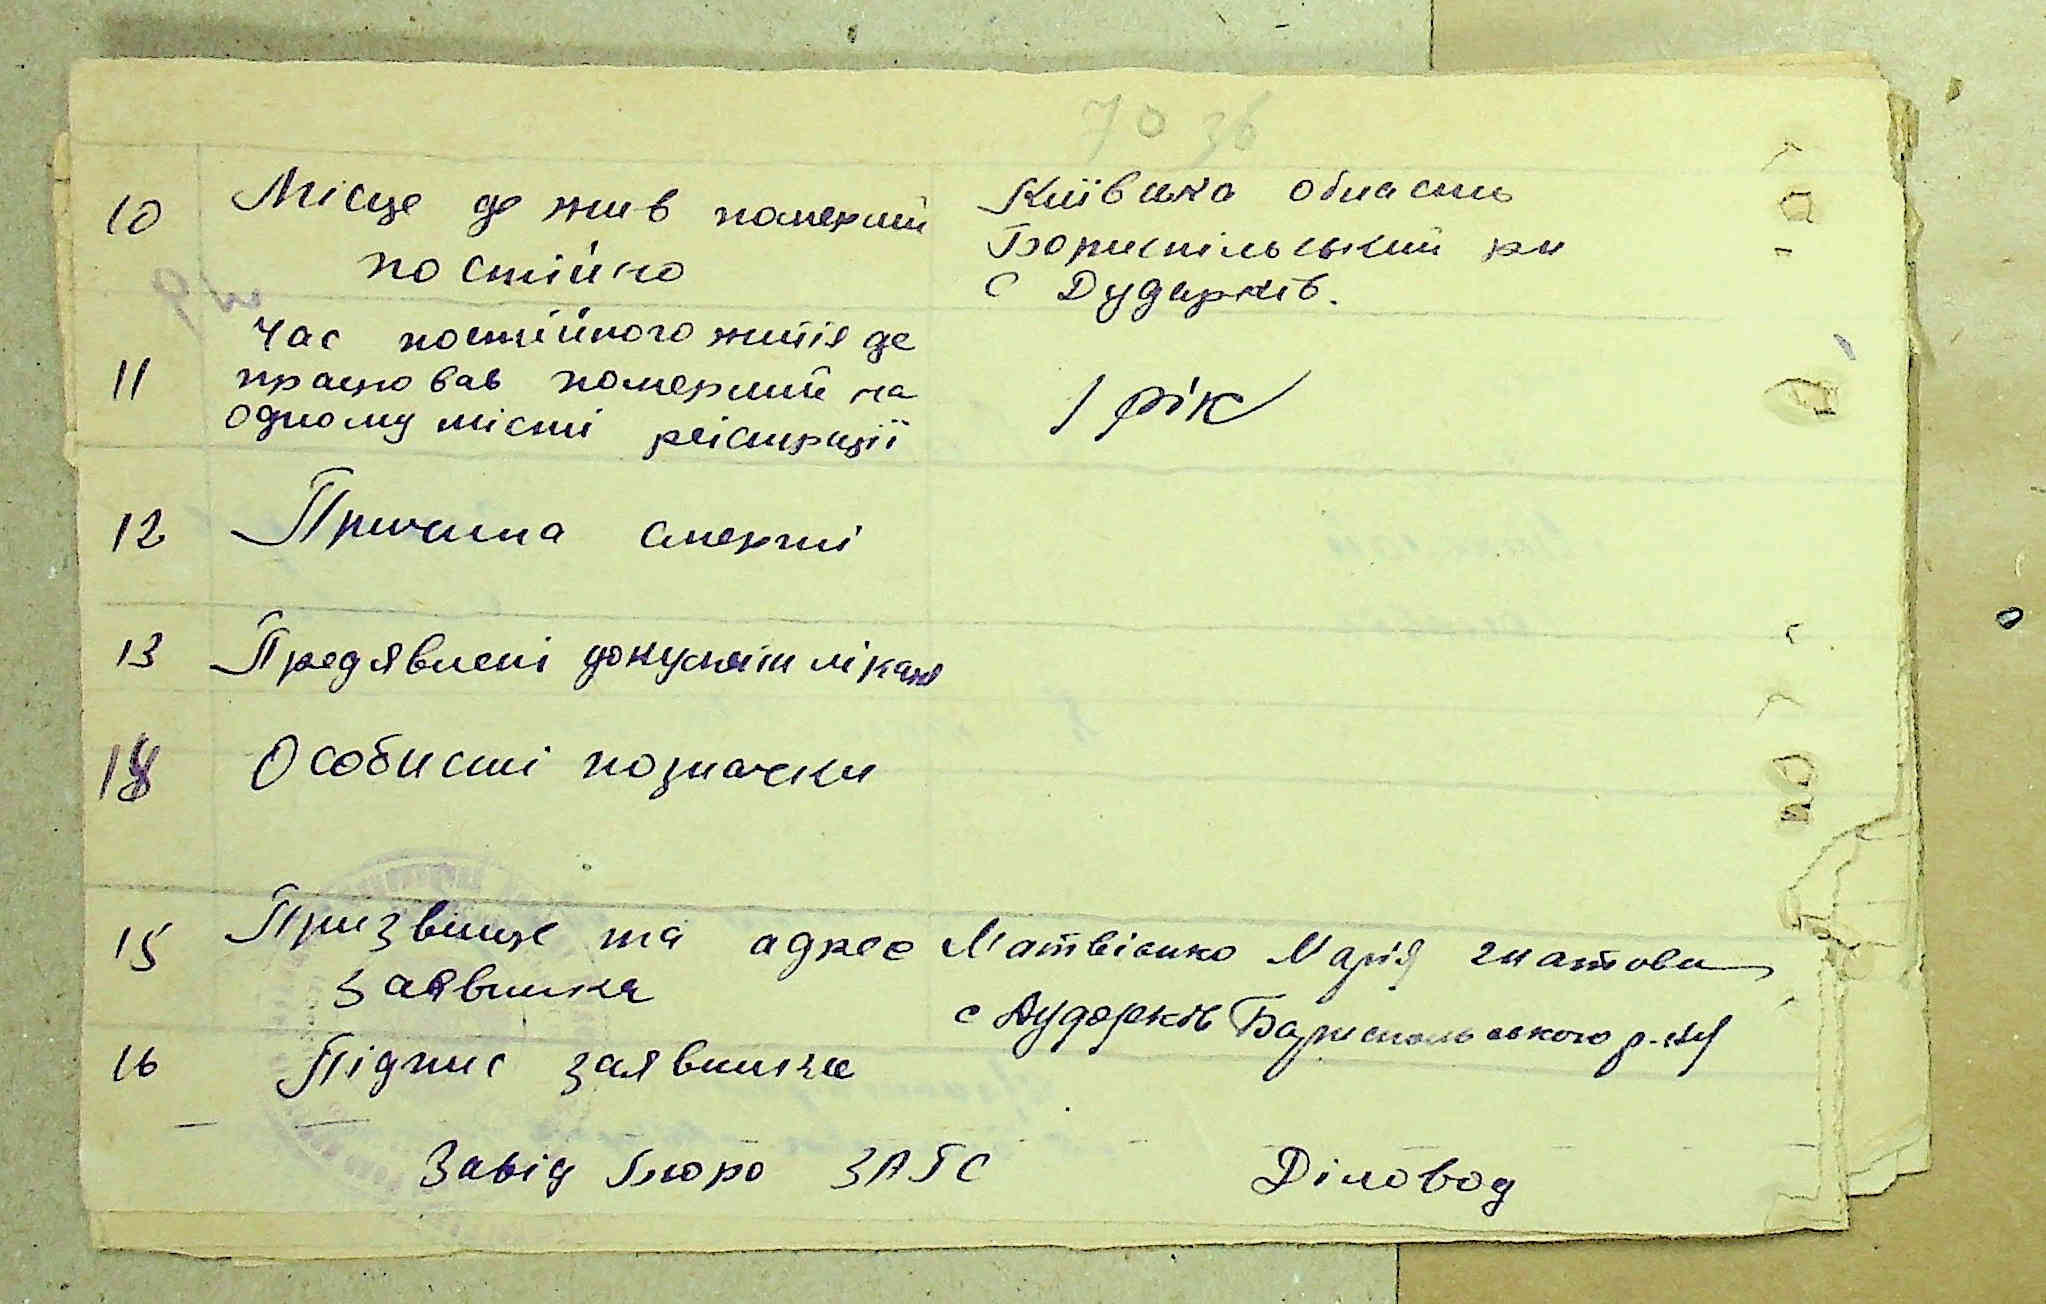 70 36
10 Місце де жив померший Київська область
постійно Бориспільський рн
с Дударків.
Час постійного життя де
11 працював померший на 1 рік
одному місті реістрації
12 Причина смерті
13 Предявлені документи лікаря
14 Особисті позначки
15 Призвище та адрес Матвієнко Марія гнатовна
заявника с Дударків Бориспольського р-ну
16 Підпис заявника
Завід бюро ЗАГС Діловод